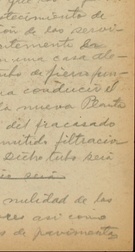 tecimiento de
ón de los servi
ntemente da
n una casa de
tubo de fierro fun
a conducir el
la nueva Planta
del fracisado
mitido filtracio
Dicho tubo será
nulidad de las
ces así como
s de pavimentos